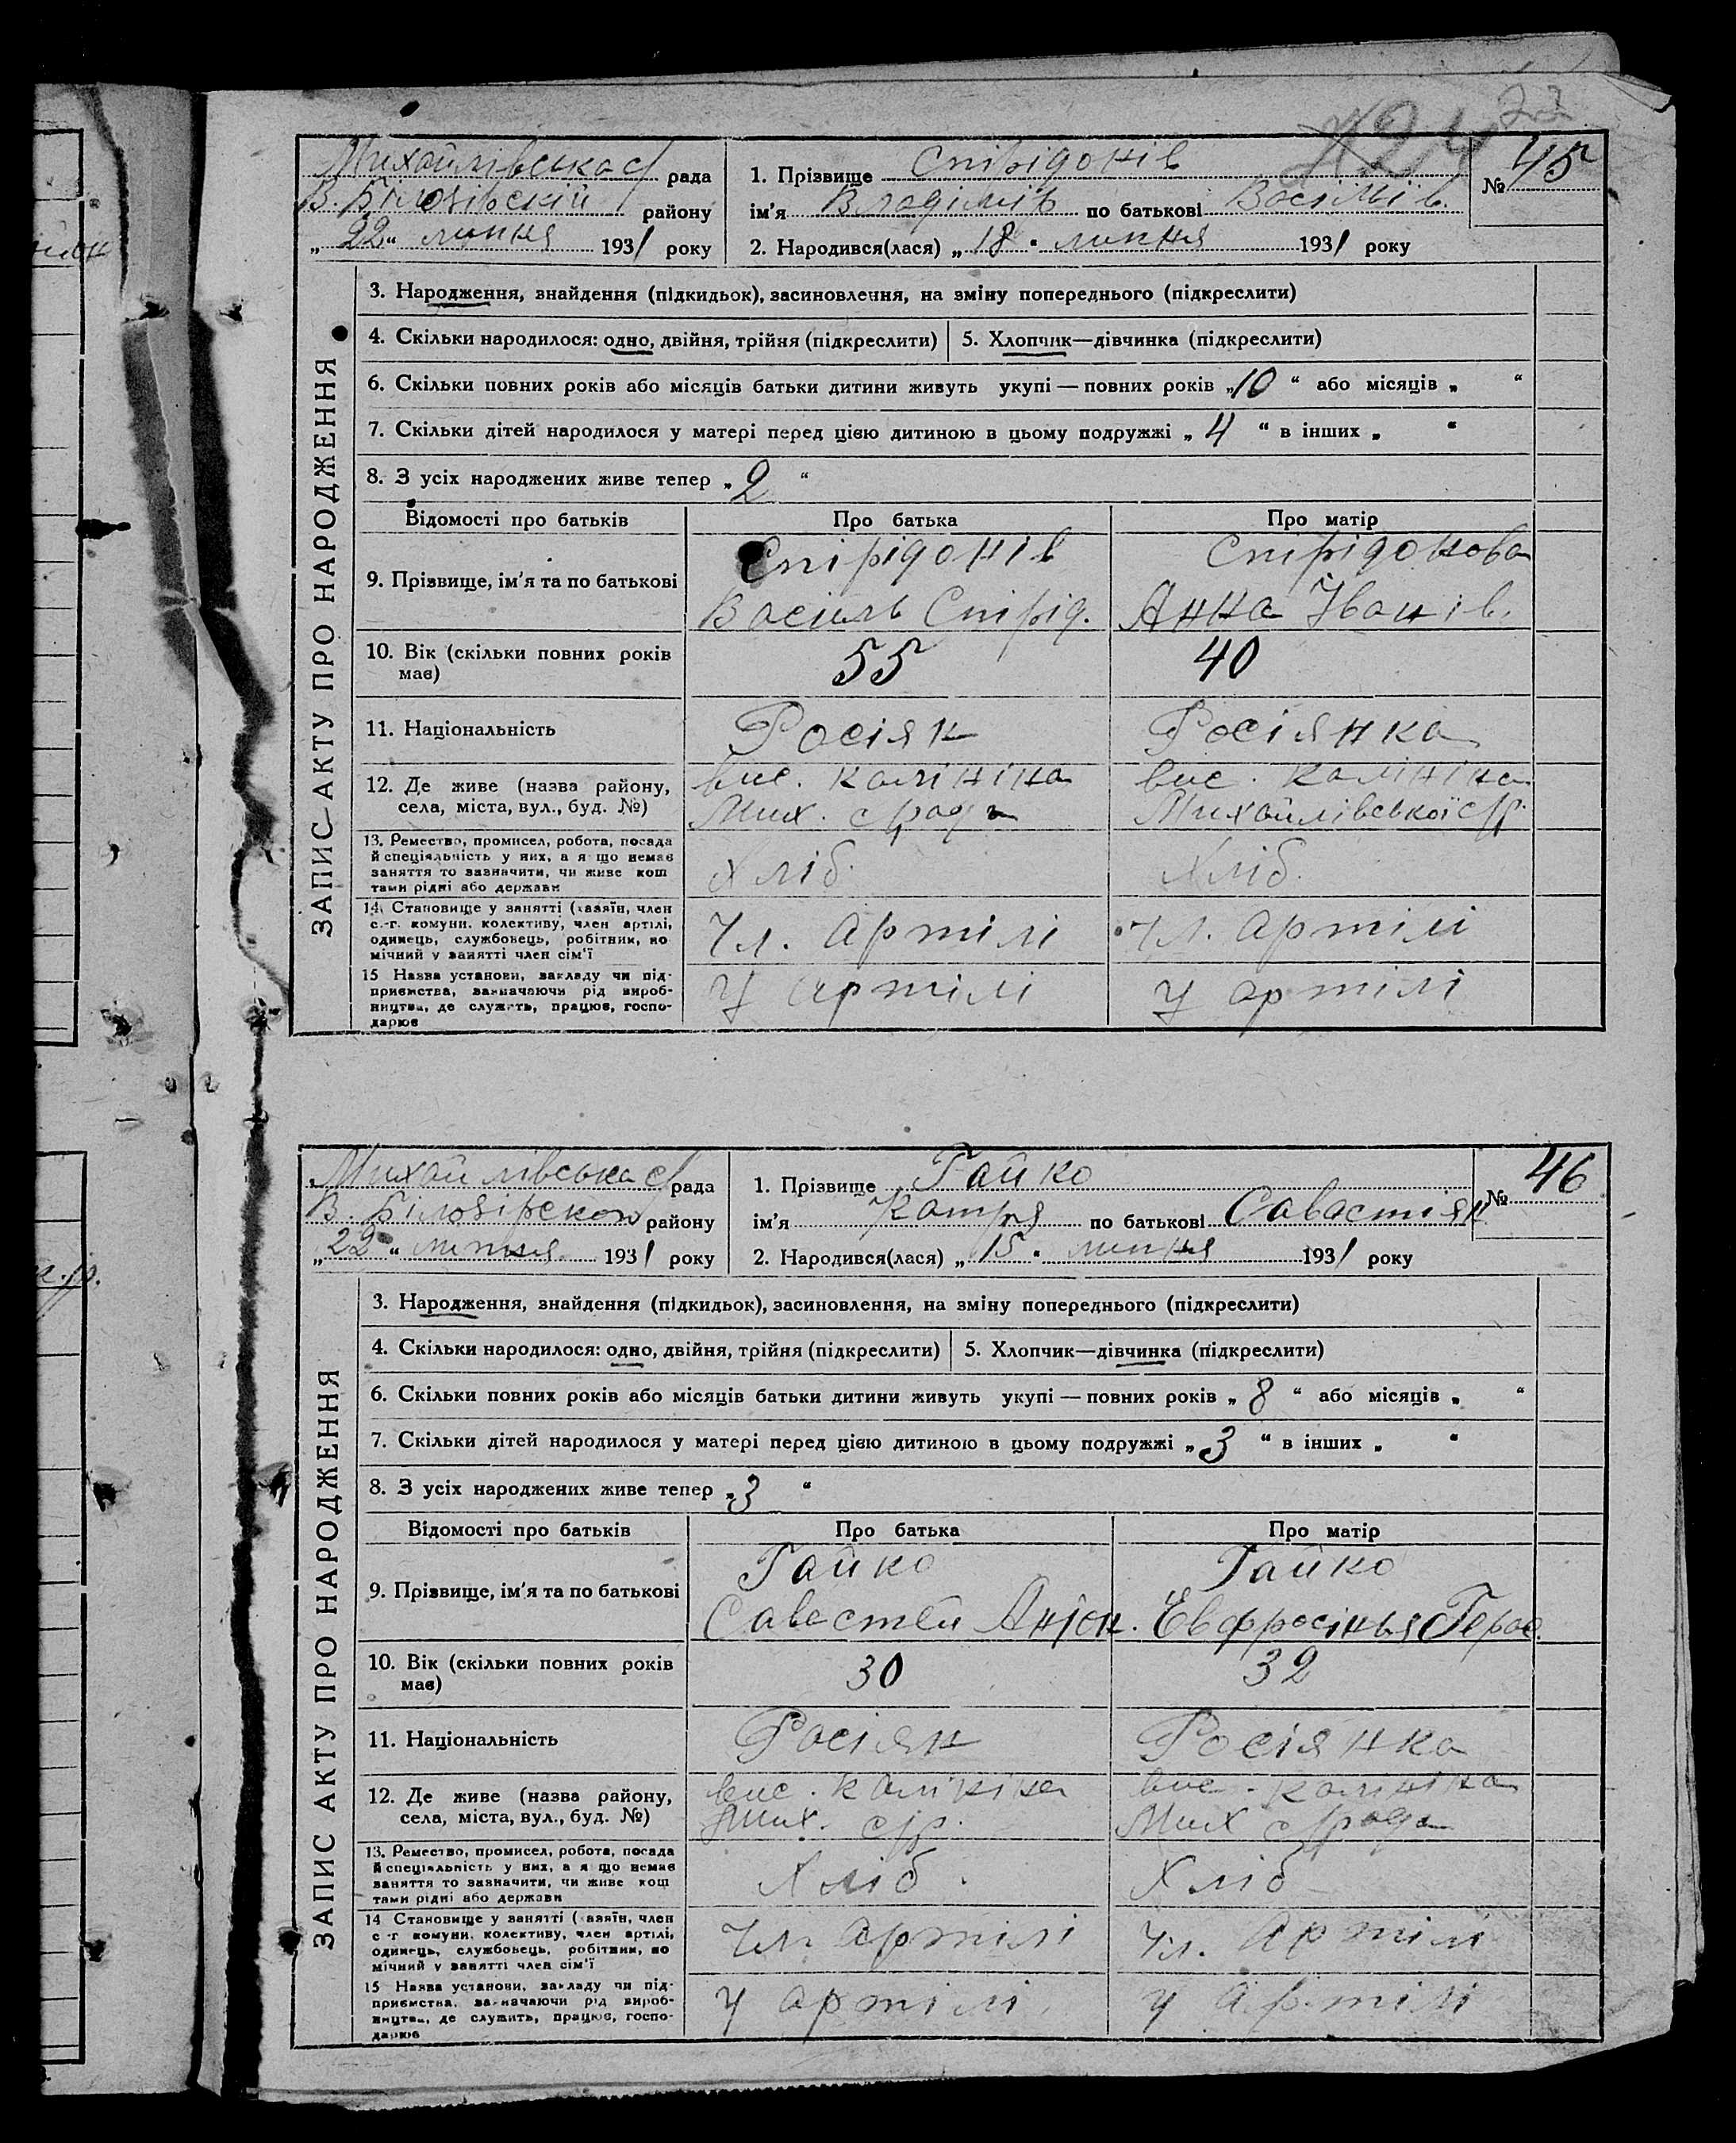 22
24
Михайлівська с/ рада
В. Білозірскій району
„22“ липня 1931 року
1. Прізвище Спірідонів
ім'я Владімір по батькові Васільів.
2. Народився(лася) „18“ липня 1931 року
№ 45
ЗАПИС АКТУ ПРО НАРОДЖЕННЯ
3. Народження, знайдення (підкидьок), засиновлення, на зміну попереднього (підкреслити)
4. Скільки народилося: одно, двійня, трійня (підкреслити)
5. Хлопчик—дівчинка (підкреслити)
6. Скільки повних років або місяців батьки дитини живуть укупі — повних років „10“ або місяців „ “
7. Скільки дітей народилося у матері перед цією дитиною в цьому подружжі „4“ в інших „ “
8. З усіх народжених живе тепер „2“
Відомості про батьків Про батька Про матір
9. Прізвище, ім'я та по батькові
Спірідонів
Василь Спірід.
Спірідонова
Анна Іванів.
10. Вік (скільки повних років має)
55
40
11. Національність
Росіян
Росіянка
12. Де живе (назва району,
села, міста, вул., буд. №)
вис. Калініна
Мих. с/рада
вис. Калініна
Михайлівської с/р.
13. Ремество, промисел, робота, посада
й спеціяльність у них, а якщо немає
заняття то зазначити, чи живе кош
тами рідні або держави
Хліб.
Хліб.
14. Становище у занятті (хазяїн, член
с.-г. комуни, колективу, член артілі,
одинець, службовець, робітник, по
мічний у занятті член сім'ї
Чл. артілі
Чл. артілі
15 Назва установи, закладу чи під-
приємства, зазначаючи рід вироб-
ництва, де служить, працює, госпо-
дарює
У артілі
У артілі
Михайлівська с/ рада
В. Білозірской району
„22“ липня 1931 року
1. Прізвище Гайко
ім'я Катря по батькові Савастіян
2. Народився(лася) „15“ липня 1931 року
№ 46
ЗАПИС АКТУ ПРО НАРОДЖЕННЯ
3. Народження, знайдення (підкидьок), засиновлення, на зміну попереднього (підкреслити)
4. Скільки народилося: одно, двійня, трійня (підкреслити)
5. Хлопчик—дівчинка (підкреслити)
6. Скільки повних років або місяців батьки дитини живуть укупі — повних років „8“ або місяців „ “
7. Скільки дітей народилося у матері перед цією дитиною в цьому подружжі „3“ в інших „ “
8. З усіх народжених живе тепер „3“
Відомості про батьків Про батька Про матір
9. Прізвище, ім'я та по батькові
Гайко
Савастей
Гайко
Евфросінья Герас.
10. Вік (скільки повних років має)
30
32
11. Національність
Росіян
Росіянка
12. Де живе (назва району,
села, міста, вул., буд. №)
вис. Калініна
Мих. с/р.
вис. Калініна
Мих с/рада
13. Ремество, промисел, робота, посада
й спеціяльність у них, а якщо немає
заняття то зазначити, чи живе кош
тами рідні або держави
Хліб.
Хліб
14 Становище у занятті (хазяїн, член
с-г комуни, колективу, член артілі,
одинець, службовець, робітник, по
мічний у занятті член сім'ї
Чл. артілі
Чл. артілі
15 Назва установи, закладу чи під-
приємства, зазначаючи рід вироб-
ництва, де служить, працює, госпо-
дарює
У артілі
У артілі